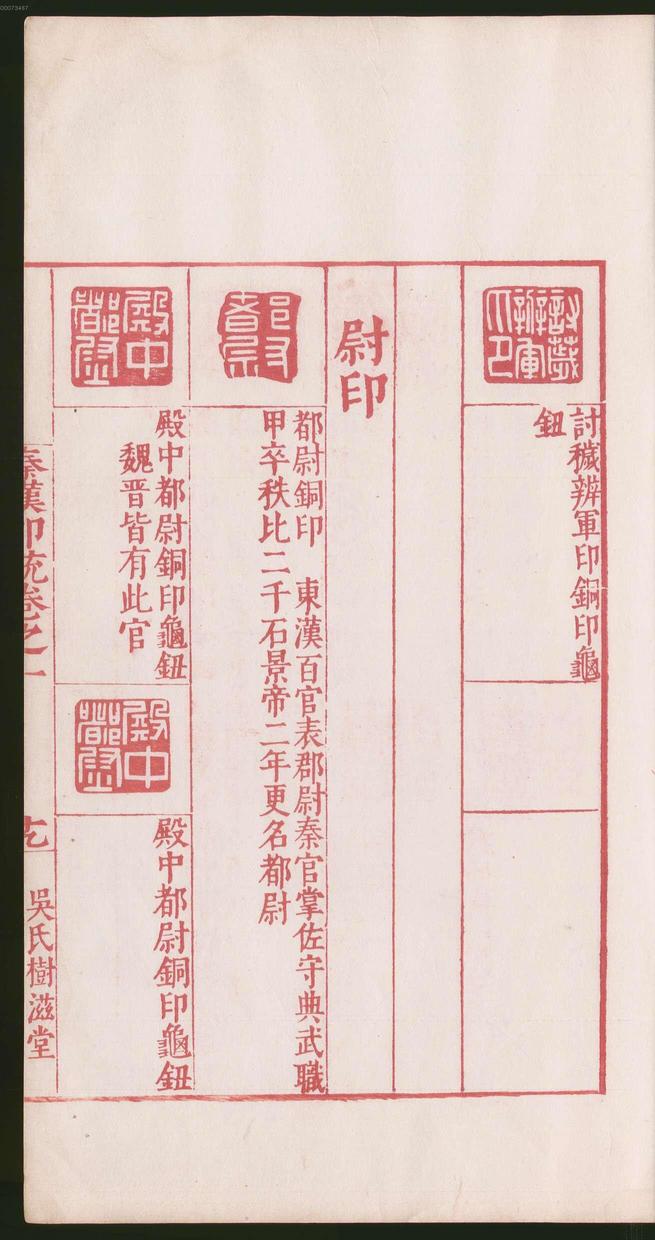 討穢辨軍印
討穢辨軍印銅印龜
鈕
尉印
都尉
都尉銅印　東漢百官表郡尉秦官掌佐守典武職
甲卒秩比二千石景帝二年更名都尉
殿中都尉
殿中都尉銅印龜鈕
魏晉皆有此官
殿中都尉
殿中都尉銅印龜鈕
秦漢印統卷之一
吳氏樹滋堂
00073467